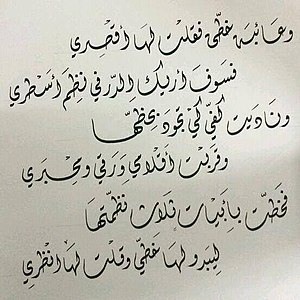 وعائبة خطّي فقلت لها أقصري
فسوف أريك الدرّ في نظم أسطري
وناديت كفّي كي تجود بخطّها
وقرّبت أقلامي ورقّي ومحبري
فخطّت بأبيات ثلاث نظمتها
ليبدو لها خطّي وقلت لها انظري